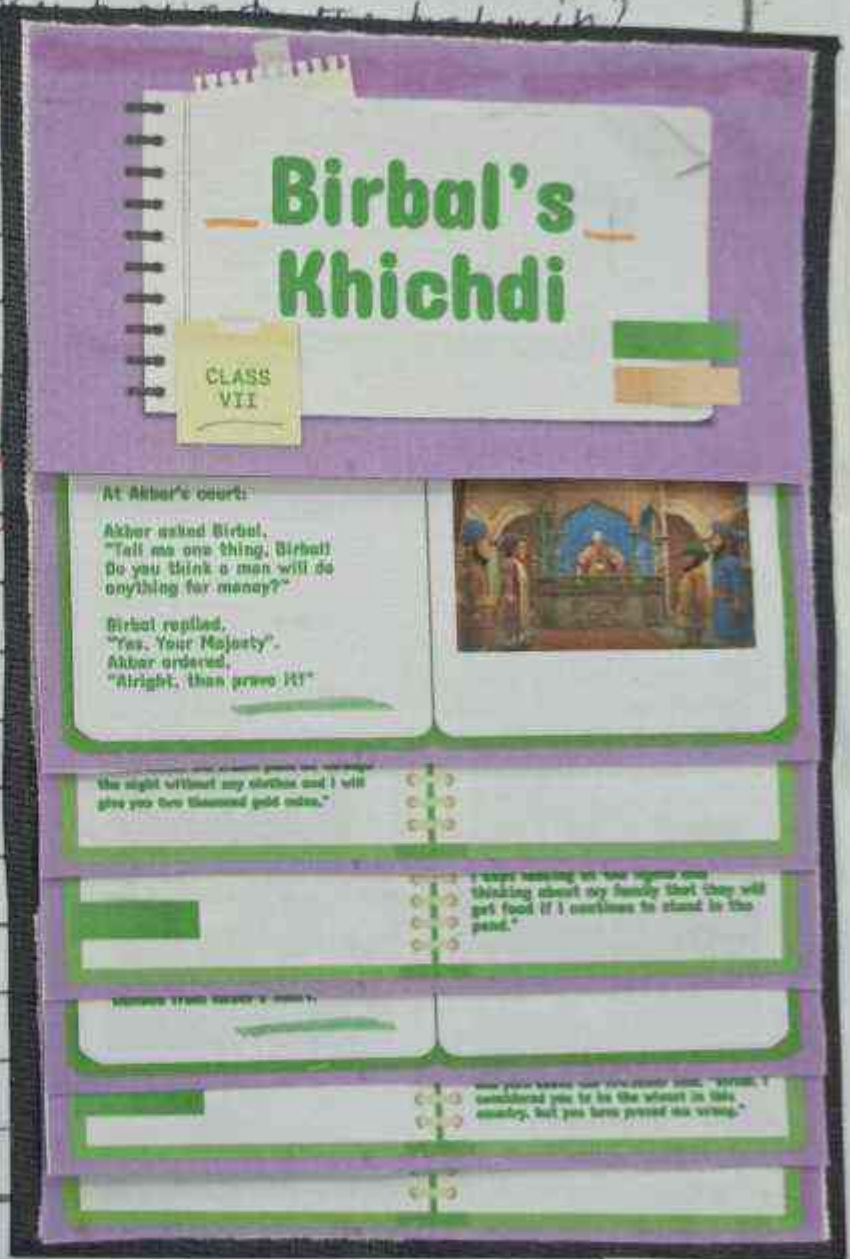 Birbal's
Khichdi
CLASS
VII
At Akbar's court:
Akbar asked Birbal,
"Tell me one thing, Birbal!
Do you think a man will do
anything for money?"
Birbal replied,
"Yes, Your Majesty".
Akbar ordered,
"Alright, then prove it!"
the night without any clothes and I will
give you two thousand gold coins."
I kept looking at the lights and
thinking about my family that they will
get food if I continue to stand in the
pond."
considered you to be the wisest in this
country, but you have proved me wrong."